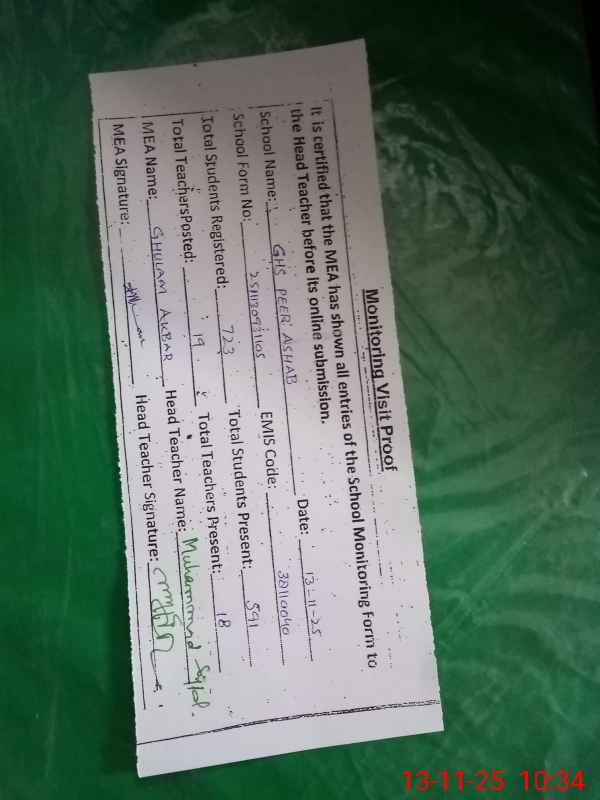 Monitoring Visit Proof
It is certified that the MEA has shown all entries of the School Monitoring Form to
the Head Teacher before its online submission.
Date: 13-11-25
School Name: GHS PEER ASHAB
EMIS Code: 38110040
School Form No: 2511130931105
Total Students Registered: 723 Total Students Present: 591
Total TeachersPosted: 19 Total Teachers Present: 18
MEA Name: GHULAM AKBAR Head Teacher Name: Muhammad Sajid
MEA Signature: Head Teacher Signature:
13-11-25 10:34